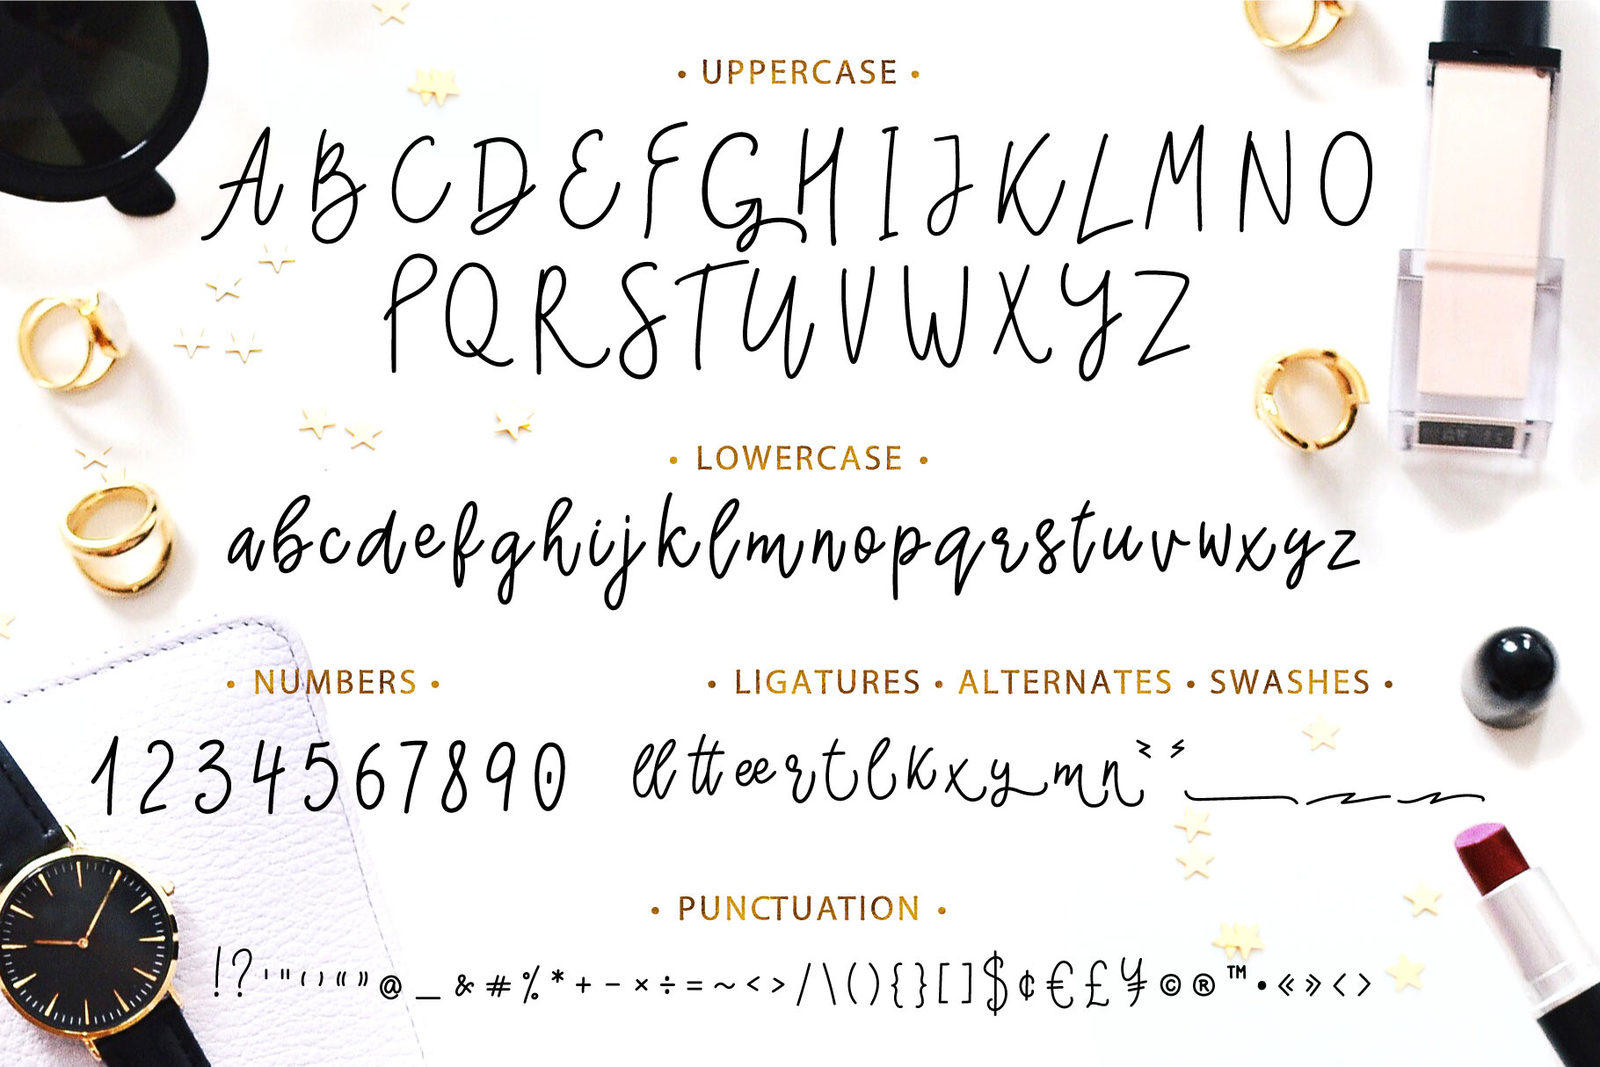 • UPPERCASE •
A B C D E F G H I J K L M N O
P Q R S T U V W X Y Z
• LOWERCASE •
a b c d e f g h i j k l m n o p q r s t u v w x y z
• NUMBERS •
1 2 3 4 5 6 7 8 9 0
• LIGATURES • ALTERNATES • SWASHES •
ll tt ee r t l k x y m n
• PUNCTUATION •
! ? ' " ‘ ’ “ ” @ _ & # % * + − × ÷ = ~ < > / \ ( ) { } [ ] $ ¢ € £ ¥ © ® ™ • « » ‹ ›